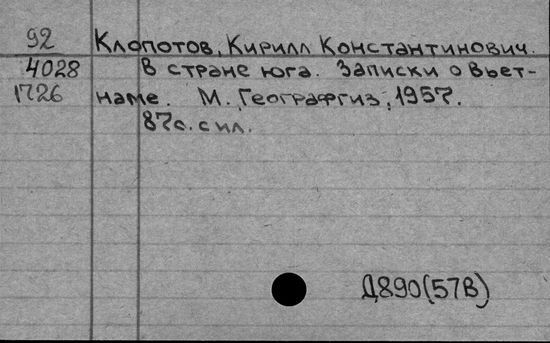 92 Клопотов, Кирилл Константинович.
4028 В стране юга. Записки о Вьет-
1726 наме. М. Географгиз, 1957.
87с. с ил.
Д890(57В)